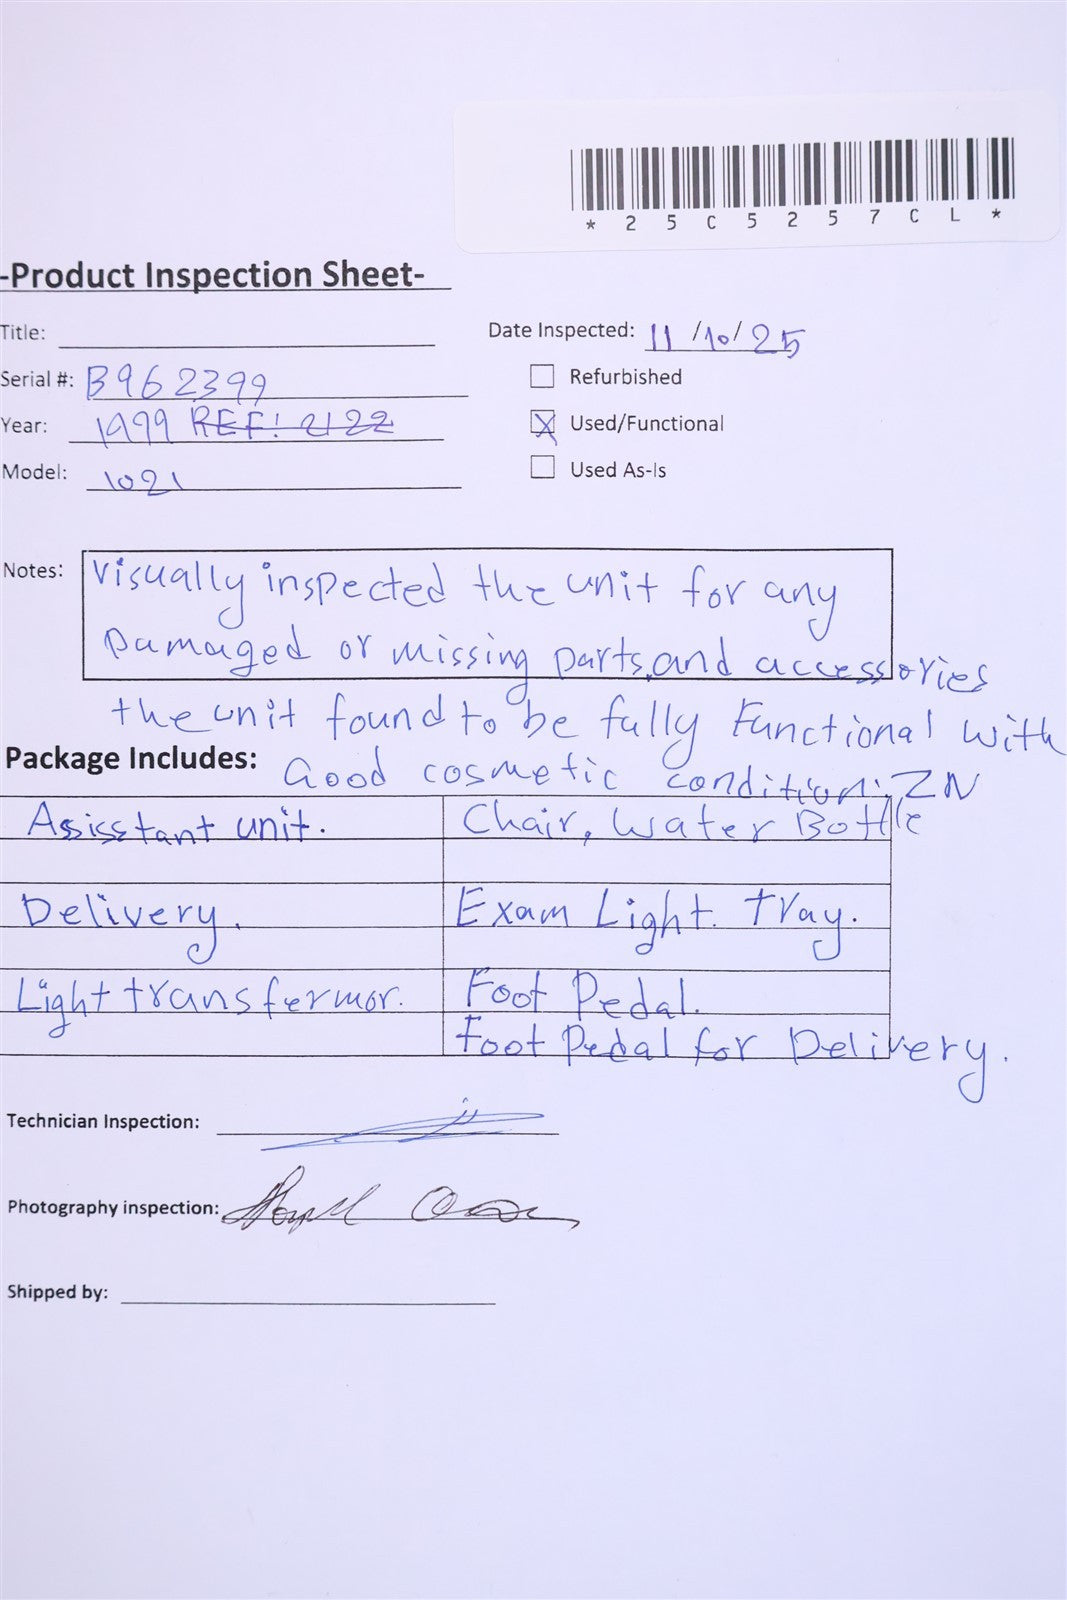 *25C5257CL*
-Product Inspection Sheet-
Title:
Date Inspected: 11/10/25
Serial #: B962399
Refurbished
Year: 1999 REF: 2122
Used/Functional
Model: 1021
Used As-Is
Notes: Visually inspected the unit for any
Damaged or missing parts, and accessories
the unit found to be fully Functional with
Good cosmetic condition. ZN
Package Includes:
Assisstant unit. Chair, Water Bottle
Delivery. Exam Light. Tray.
Light transfermor. Foot Pedal.
Foot Pedal for Delivery.
Technician Inspection:
Photography inspection:
Shipped by: